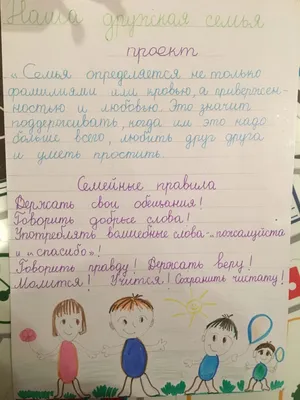 Наша дружская семья
проект
„ Семья определяется не только
фамилиями или кровью, а привержен-
ностью и любовью. Это значит
поддерживать, когда им это надо
больше всего, любить друг друга
и уметь простить.
Семейные правила
Держать свои обещания!
Говорить добрые слова!
Употреблять волшебные слова-„пожалуйста
и „спасибо"!
Говорить правду! Держать веру!
Молится! Учится! Сохранить чистату!